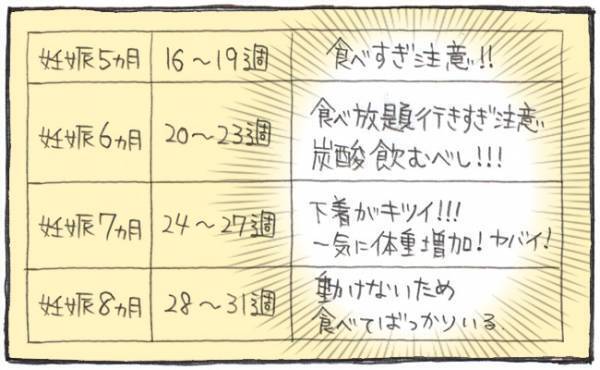 妊娠5カ月 16～19週 食べすぎ注意!!
妊娠6カ月 20～23週 食べ放題行きすぎ注意
炭酸飲むべし!!!
妊娠7カ月 24～27週 下着がキツイ!!!
一気に体重増加!ヤバイ!
妊娠8カ月 28～31週 動けないため
食べてばっかりいる